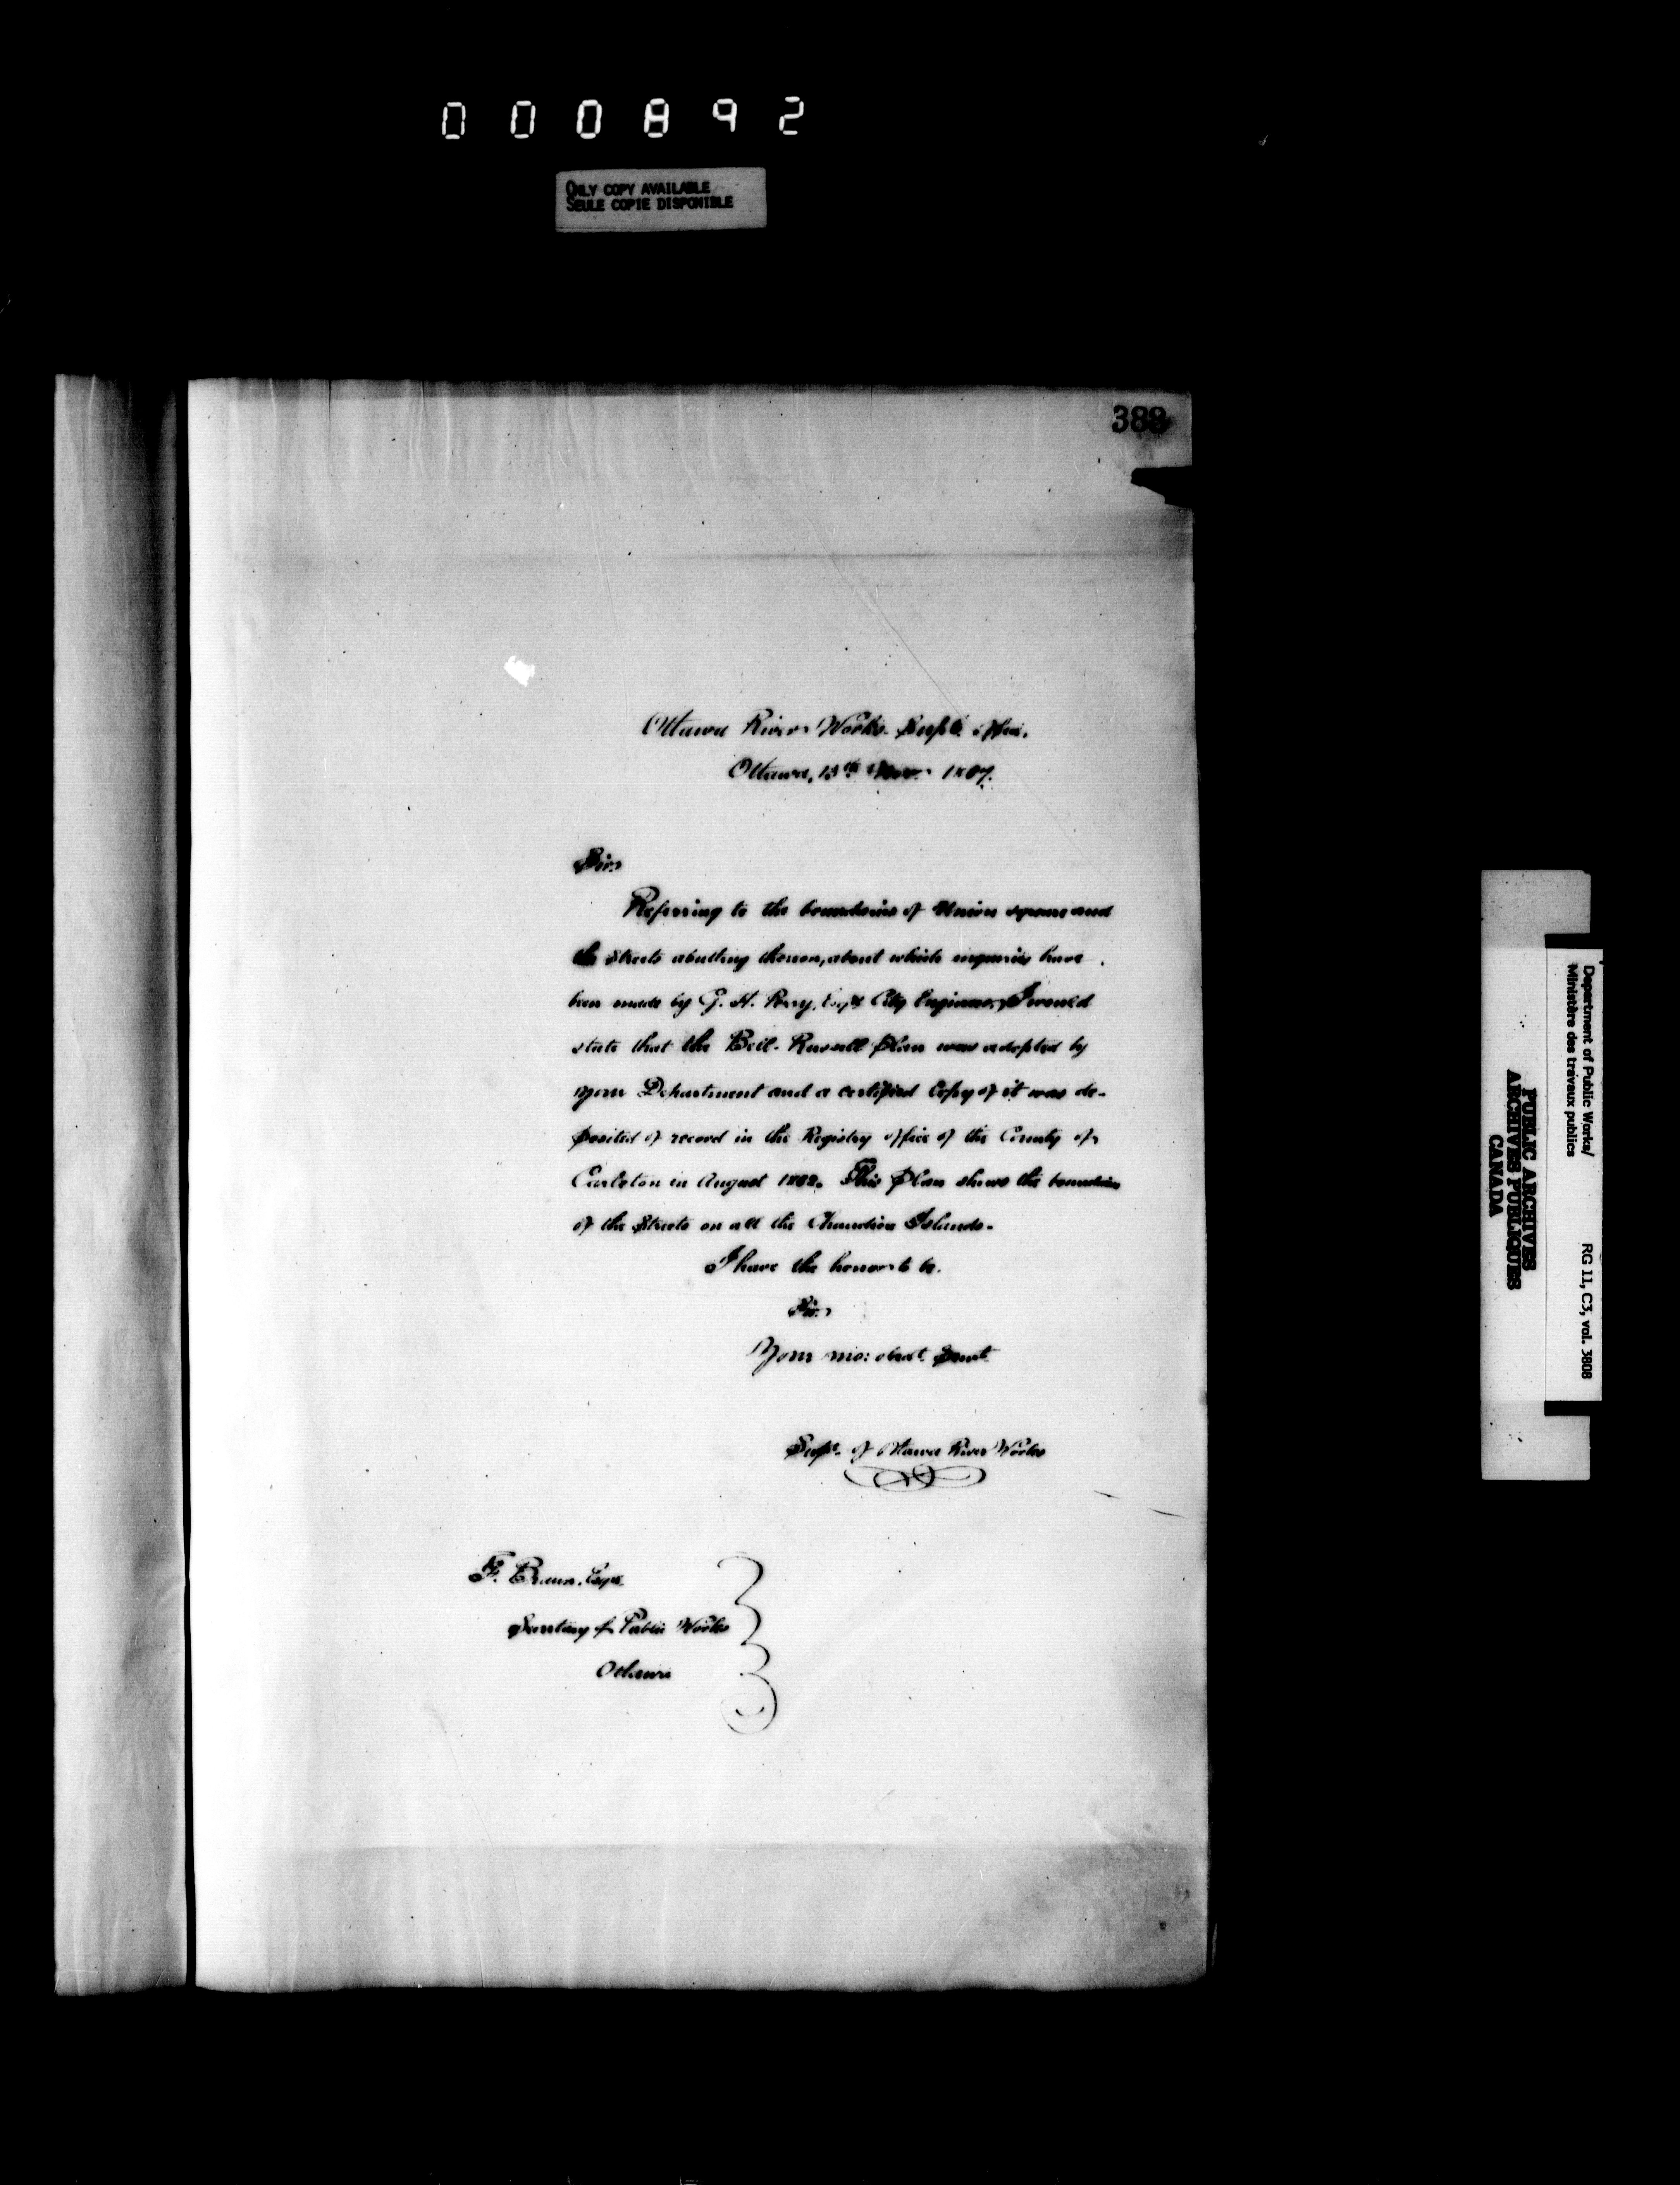 000892
ONLY COPY AVAILABLE
SEULE COPIE DISPONIBLE
Ottawa River Works. Supts. office.
Ottawa, 13th Nov. 1867.
Sir
Referring to the boundaries of Union square and
the Streets abutting thereon, about which inquiries have
been made by G. H. Perry, Esqre City Engineer, I would
state that the Russell Plan was adopted by
your Department and a certified Copy of it was de-
posited of record in the Registry office of the County of
Carleton in August. This Plan shews the boundaries
of the Streets on all the Chaudiere Islands.
I have the honor to be.
Sir.
Your mo: obedt. Servt.
Supt. of Ottawa River Works
F. Braun, Esqre.
Secretary of Public Works
Ottawa
Department of Public Works/
Ministère des travaux publics
RG 11, C3, vol. 3808
PUBLIC ARCHIVES
ARCHIVES PUBLIQUES
CANADA